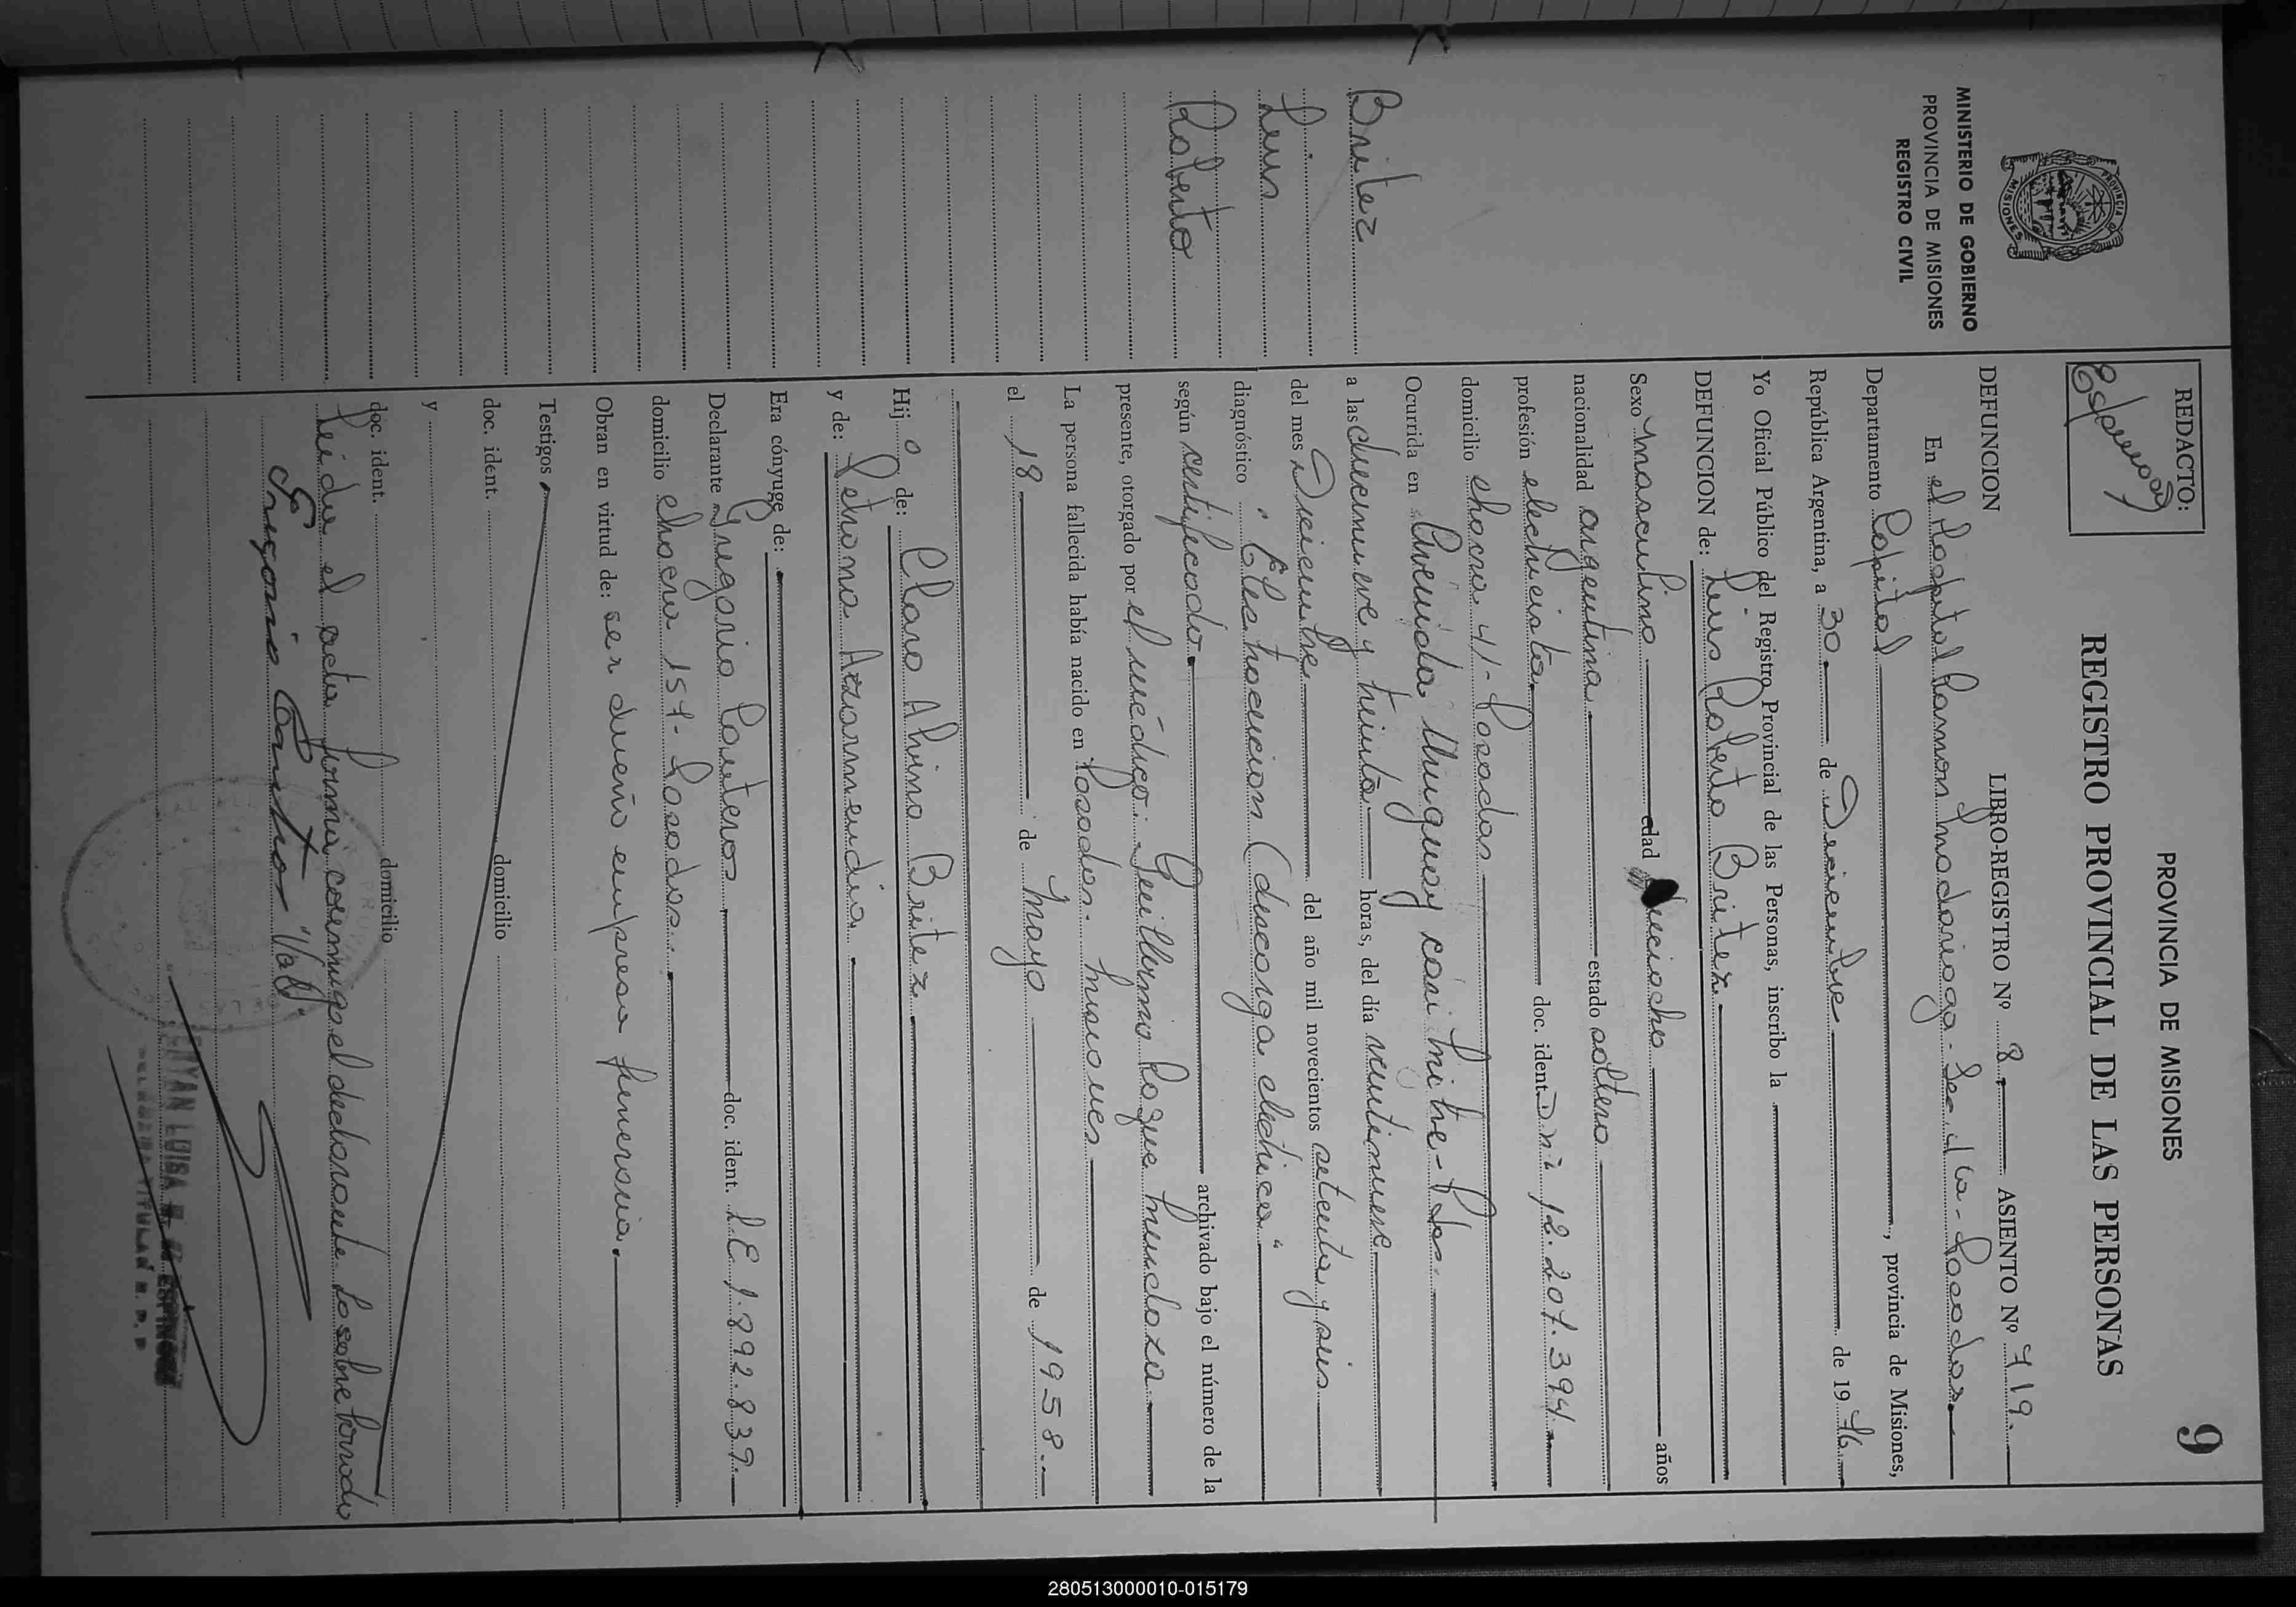 PROVINCIA DE MISIONES
9
REGISTRO PROVINCIAL DE LAS PERSONAS
REDACTO:
PROVINCIA
MISIONES
MINISTERIO DE GOBIERNO
PROVINCIA DE MISIONES
REGISTRO CIVIL
Britez
Luis
Roberto
DEFUNCION LIBRO-REGISTRO Nº 8 ASIENTO Nº 719.
En el Hospital Ramon Madariaga - Sec. d la - Posadas.
Departamento Capital, provincia de Misiones,
República Argentina, a 30 de Diciembre de 1976
Yo Oficial Público del Registro Provincial de las Personas, inscribo la
DEFUNCION de: Luis Roberto Britez
Sexo masculino edad dieciocho años
nacionalidad argentina estado soltero
profesión electricista doc. ident. Dni 12.207.394
domicilio chacra 41- Posadas
Ocurrida en Avenida Uruguay casi Mitre - Pdas.
a las diecinueve y treinta horas, del día veintinueve
del mes Diciembre del año mil novecientos setenta y seis
diagnóstico "Electrocucion (descarga electrica"
según certificado archivado bajo el número de la
presente, otorgado por el médico: Guillermo Roque Mendoza
La persona fallecida había nacido en Posadas - Misiones
el 18 de Mayo de 1958.
Hijo de: Claro Alvino Britez
y de: Petrona Azarmendia
Era cónyuge de:
Declarante Gregorio Canteros doc. ident. L.E 1.892.839.
domicilio chacra 157- Posadas
Obran en virtud de: ser dueño empresa funeraria.
Testigos
doc. ident. domicilio
y
doc. ident. domicilio
Leída el acta firma conmigo el declarante Lo sobre borrado
"Vale"
LUISA
TITULAR R. P. P
280513000010-015179